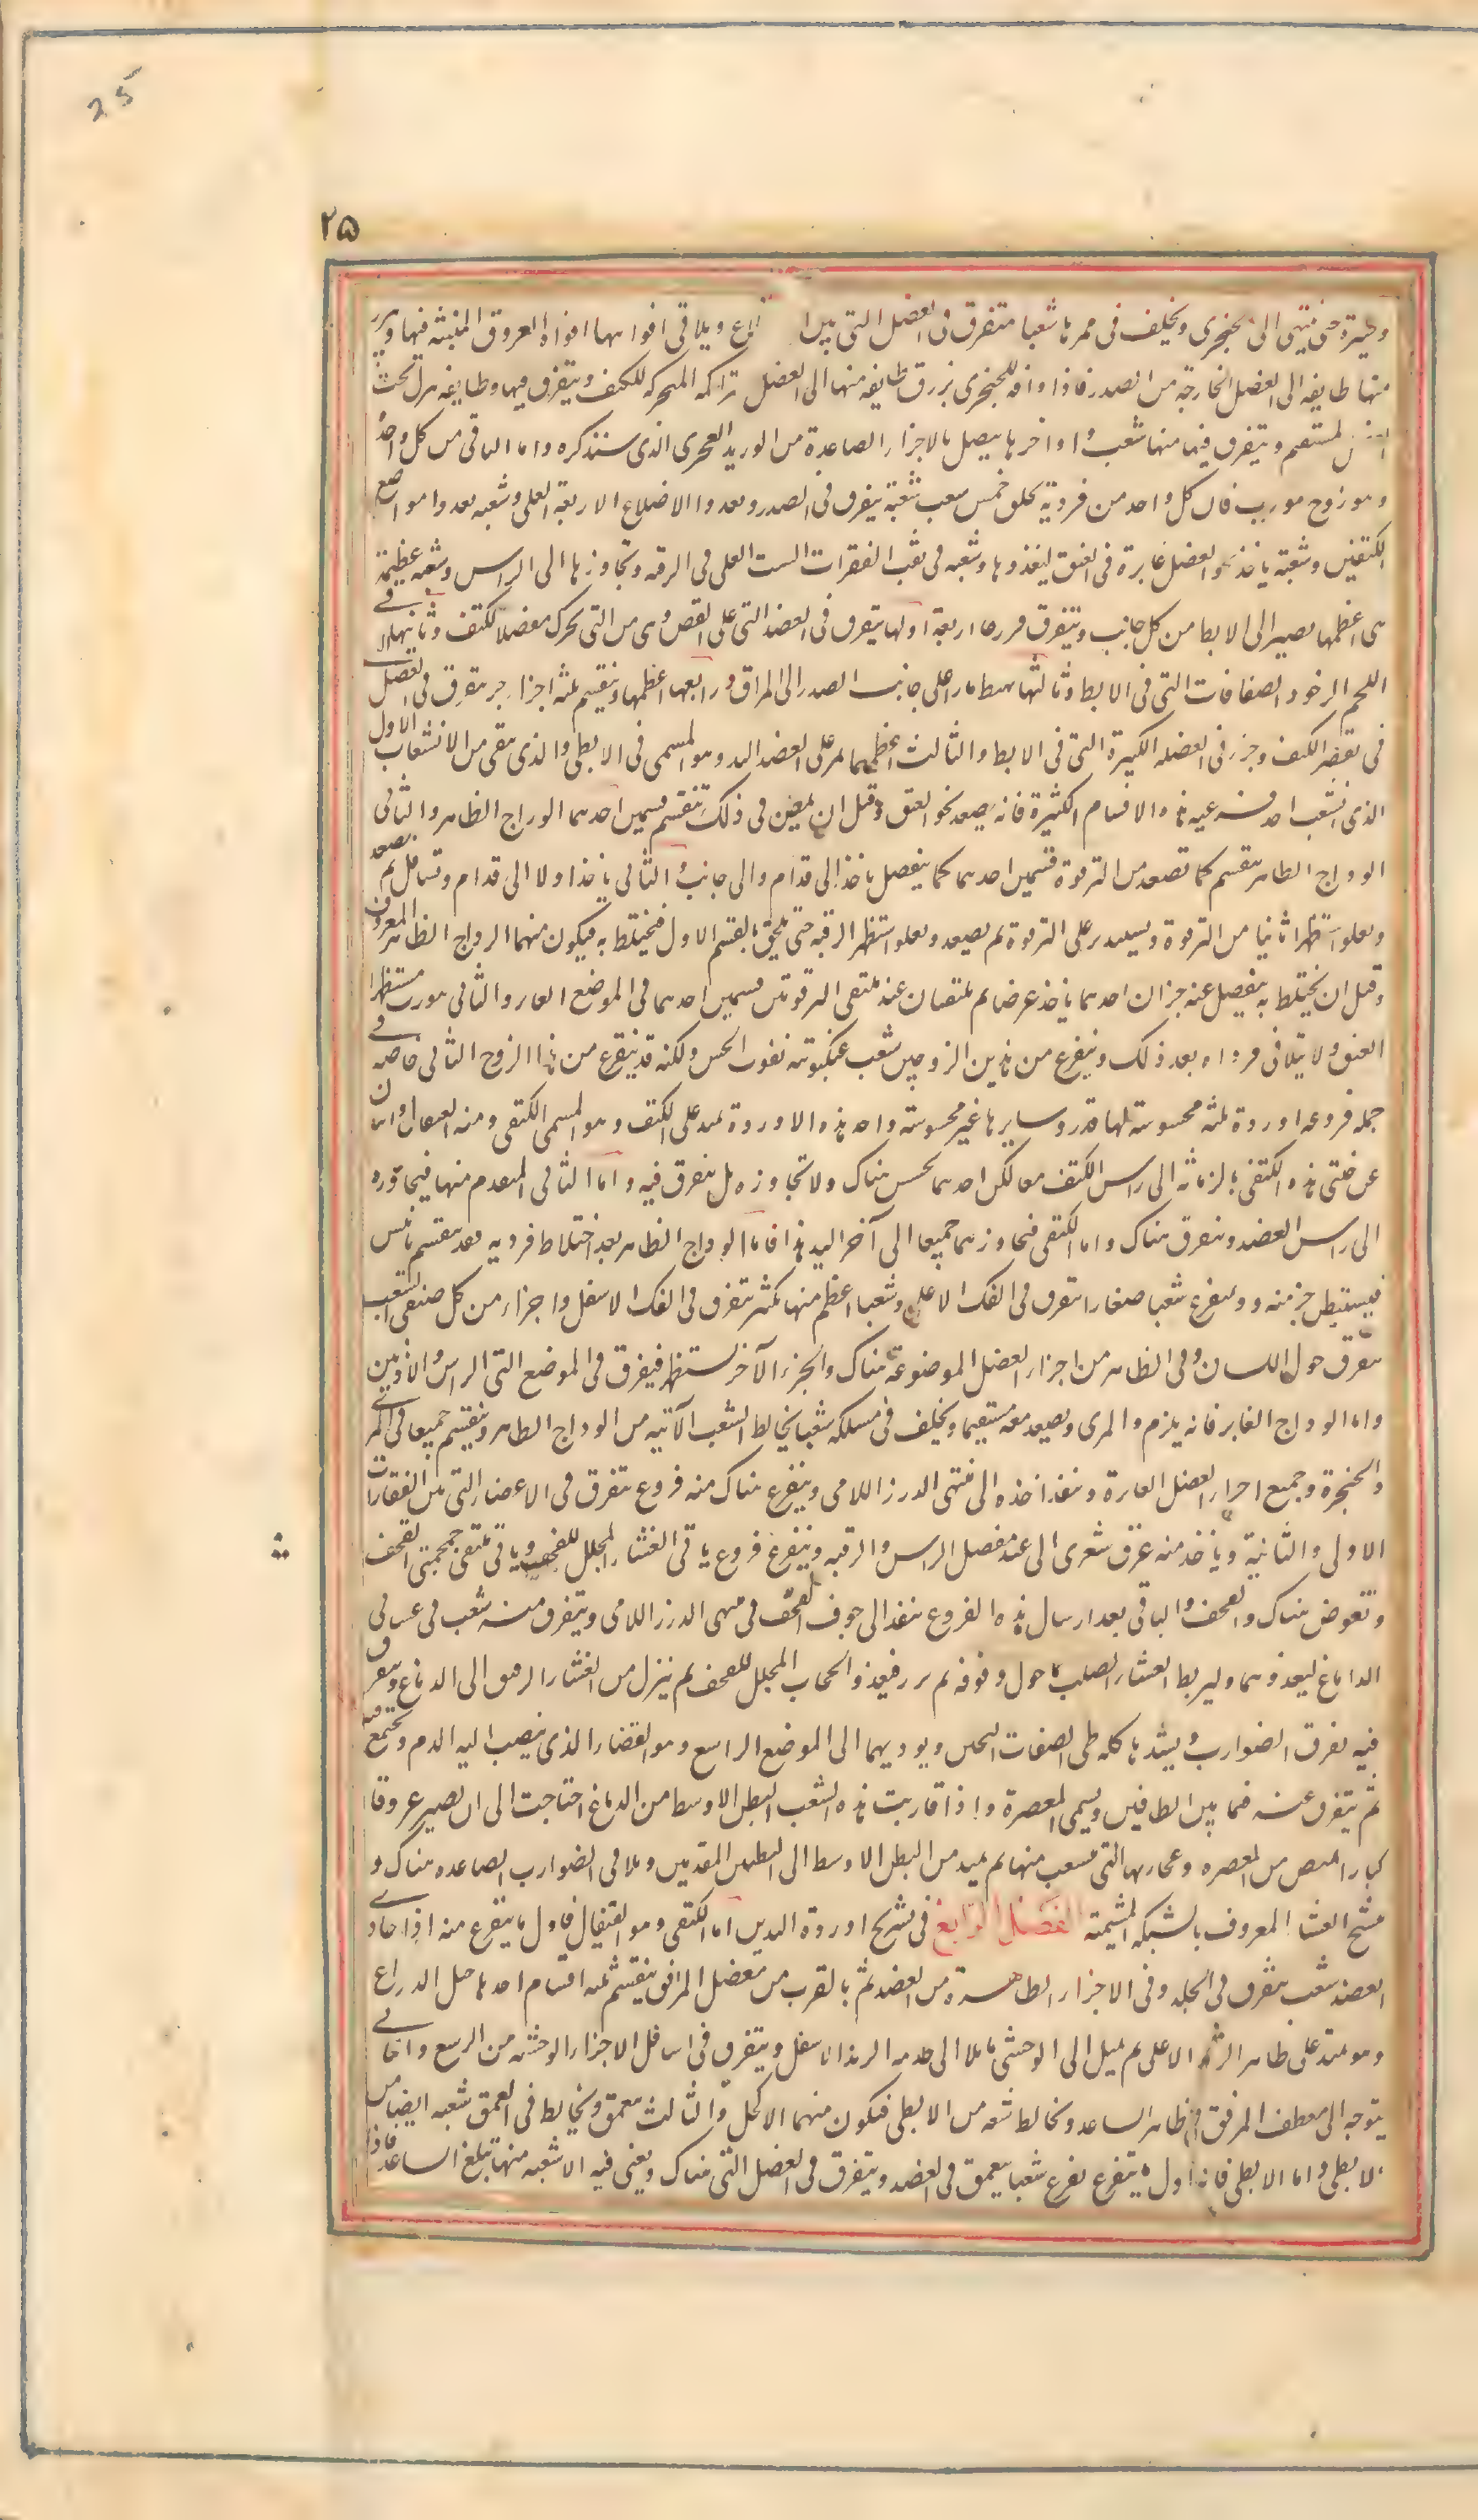 25
٢۵
ويسرة حتى ينتهى الى الحنجرى ويخلف فى ممرها شعبا متفرق فى العضل التى بين الاضلاع ويلاقى افواهها افواه العروق المنبثه فيها ويبرز
منها طايفه الى العضل الخارجة من الصدر فاذا وافه الحنجرى برزت طايفه منها الى العضل المتراكمه المحركه للكتف ويتفرق فيها وطايفه تنزل تحت
العضل المستقيم ويتفرق فيها منها شعب واواخرها يتصل بالاجزاء الصاعدة من الوريد العجزى الذى سنذكره واما الباقى من كل واحد
وهو زوج موريب فان كل واحد من فرديه يخلف خمس شعب شعبة يتفرق فى الصدر ويغذو الاضلاع الاربعة العلى وشعبه يغدوا مواضع
الكتفين وشعبة ياخذ نحو العضل غابرة فى العنق ليغذوها وشعبه فى ثقب الفقرات الست العلى فى الرقبه وتجاوزها الى الراس وشعبه عظيمة
هى اعظمها يصير الى الابط من كل جانب ويتفرق فروعا اربعة اولها يتفرق فى العضل التى على القص وهى من التى تحرك مفصل الكتف وثانيها فى
اللحم الرخو والصفاقات التى فى الابط وثالثها يهبط مارا على جانب الصدر الى المراق ورابعها اعظمها وينقسم ثلثه اجزاء جزء يتفرق فى العضل
فى تقعر الكتف وجزء فى العضله الكبيرة التى فى الابط والثالث اعظمهما يمر على العضد الى اليد وهو المسمى فى الابطى والذى يبقى من الانشعاب الاول
الذى انشعب احد فرعيه هذه الاقسام الكثيرة فانه يصعد نحو العنق وقبل ان يمعن فى ذلك تنقسم قسمين احدهما الوداج الظاهر والثانى
الوداج الظاهر ينقسم كما تصعد من الترقوة قسمين احدهما كما ينفصل ياخذ الى قدام والى جانب والثانى ياخذ اولا الى قدام وتسافل ثم يصعد
ويعلو استظهرا ثانيا من الترقوة ويستدير على الترقوة ثم يصعد ويعلو استظهر الرقبه حتى يلحق بالقسم الاول فيختلط به فيكون منهما الوداج الظاهر المعروف
وقبل ان يختلط به ينفصل عنه جزان احدهما ياخذ عرضا ثم يلتقيان عند ملتقى الترقوتين قسمين احدهما فى الموضع الغار والثانى مورب مستظهرا
العنق ولا يتلاقى فرداه بعد ذلك ويتفرع من هذين الزوجين شعب عنكبوتيه تفوت الحس ولكنه قد يتفرع من هذا الزوج الثانى خاصه فى
جمله فروعه اوردة ثلثه محسوسة لها قدر وسايرها غير محسوسة واحد هذه الاوردة يمد على الكتف وهو المسمى الكتفى ومنه القيفال واثنان
عن جنبتى هذه الكتفى يلزمانه الى راس الكتف معا لكن احدهما يحبس هناك ولا تجاوزه بل يتفرق فيه واما الثانى المتقدم منها فيجاوزه
الى راس العضد ويتفرق هناك واما الكتفى فيجاوزهما جميعا الى آخر اليد هذا فاما الوداج الظاهر بعد اختلاط فرديه فقد ينقسم باثنين
فيستبطن جزء منه ويتفرع شعبا صغارا يتفرق فى الفك الاعلى وشعبا اعظم منها بكثير يتفرق فى الفك الاسفل واجزاء من كل صنفى الشعب
يتفرق حول اللسان وفى الظاهر من اجزاء العضل الموضوعة هناك والجزء الآخر يستظهر فيفرق فى الموضع التى الراس والاذنين
واما الوداج الغابر فانه يلزم والمرى ويصعد معه مستقيما ويخلف فى مسلكه شعبا يخالط الشعب الآتيه من الوداج الظاهر وينقسم جميعا فى المرى
والحنجرة وجميع اجزاء العضل الغايرة وينفذ اخذه الى منتهى الدرز اللامى ويتفرع هناك منه فروع يتفرق فى الاعضاء التى بين الفقارات
الاولى والثانية وياخذ منه عرق شعرى الى عند مفصل الراس والرقبه ويتفرع فروع ياتى الغشاء المجلل للقحف وياتى ملتقى جمجمتى القحف
وتغوص هناك والقحف والباقى بعد ارسال هذه الفروع ينفذ الى جوف القحف فى منتهى الدرز اللامى ويتفرق منه شعب فى غشائى
الدماغ ليغذوهما وليربط الغشاء الصلب بما حول وفوقه ثم يبرز فيغذو الحجاب المجلل للقحف ثم ينزل من الغشاء الرقيق الى الدماغ ويتفرق
فيه تفرق الضوارب ويشدها كله طى الصفاق الثخين ويوديهما الى الموضع الواسع وهو الفضاء الذى ينصب اليه الدم ويجتمع فيه
ثم يتفرق عنه فيما بين الطاقين ويسمى المعصرة واذا قاربت هذه الشعب البطن الاوسط من الدماغ احتاجت الى ان يصير عروقا
كبارا تمتص من المعصره ومجاريها التى تنشعب منها ثم يمد من البطن الاوسط الى البطنين المقدمين ويلاقى الضوارب الصاعده هناك و
ينسج الغشاء المعروف بالشبكه المشيمية الفصل الرابع فى تشريح اوردة اليدين اما الكتفى وهو القيفال فاول ما يتفرع منه اذا حاذى
العضد شعب يتفرق فى الجلد وفى الاجزاء الظاهرة من العضد ثم بالقرب من مفصل المرفق ينقسم ثلثه اقسام احدها حبل الذراع
وهو يمتد على ظاهر الزند الاعلى ثم يميل الى الوحشى مايلا الى حدبه الزند الاسفل ويتفرق فى اسافل الاجزاء الوحشيه من الرسغ والثانى
يتوجه الى معطف المرفق فى ظاهر الساعد ويخالط شعبه من الابطى فيكون منهما الاكحل والثالث يتعمق ويخالط فى العمق شعبه ايضا من
الابطى واما الابطى فانه اول ما يتفرع يفرع شعبا يتعمق فى العضد ويتفرق فى العضل التى هناك ويفنى فيه الا شعبه منها تبلغ الساعد فاذا